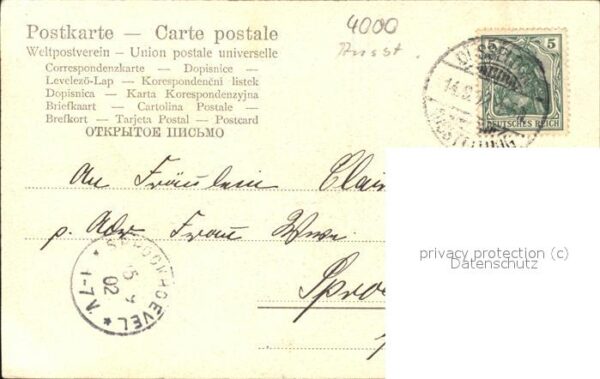 Postkarte — Carte postale
Weltpostverein - Union postale universelle
Correspondenzkarte — Dopisnice —
Levelező-Lap — Korespondenční listek
Dopisnica — Karta Korespondencyjna
Briefkaart — Cartolina Postale —
Brefkort - Tarjeta Postal - Postcard
ОТКРЫТОЕ ПИСЬМО
4000
5
DÜSSELDORF
14.9.
AUSSTELLUNG
DEUTSCHES REICH
An Fräulein
p. Adr Frau Wwe
02
privacy protection (c)
Datenschutz